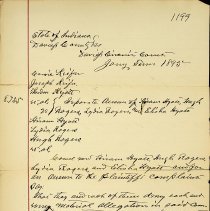 1199
State of Indiana
Daviess County SS
Daviess Circuit Court
Jany Term 1895
Annie Keifer
Joseph Keifer
Helen Hyatt
8725
et al } Separate Answer of Hiram Hyatt, Hugh
vs Rogers, Lydia Rogers and Elisha Hyatt
Hiram Hyatt
Lydia Rogers
Hugh Rogers
et al
Come now Hiram Hyatt Hugh Rogers
Lydia Rogers and Elisha Hyatt and for
an Answer to the Plaintiffs Complaint
Say
That they and each of them deny each and
every material allegation in said com